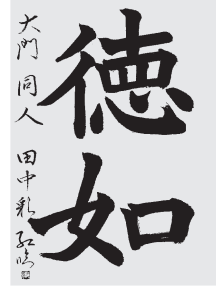 徳如
大門同人 田中彩